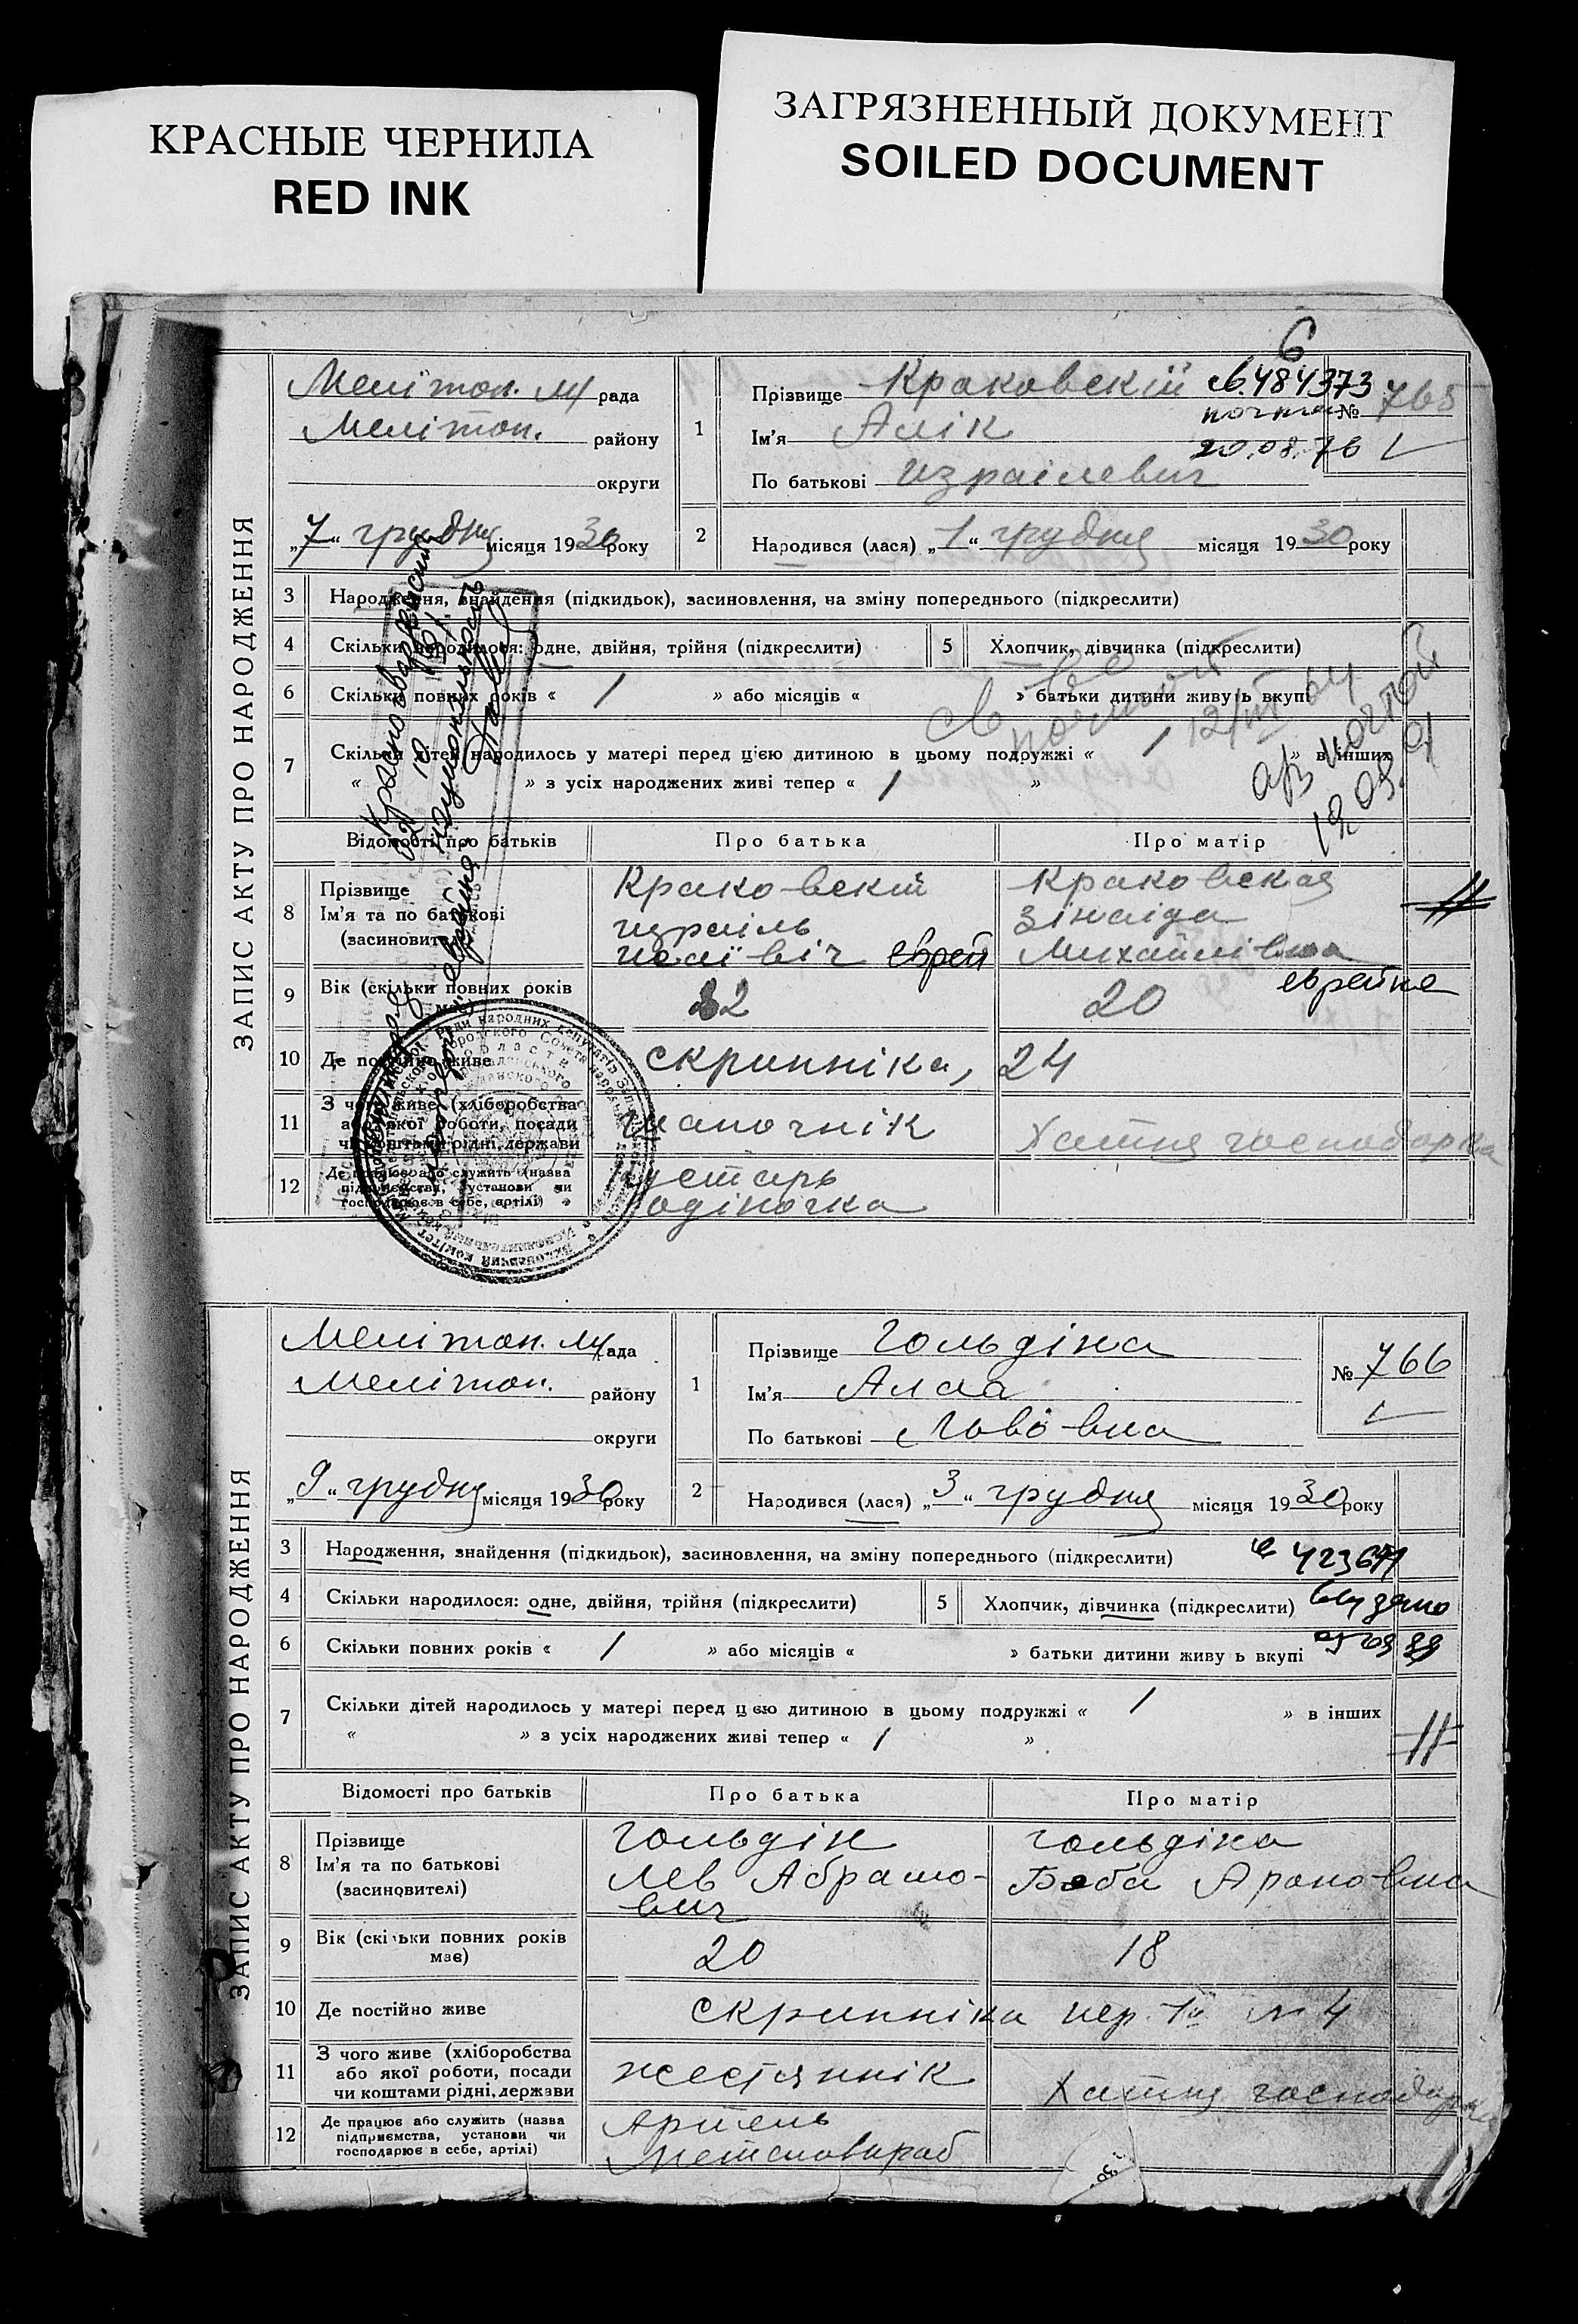 КРАСНЫЕ ЧЕРНИЛА
RED INK
ЗАГРЯЗНЕННЫЙ ДОКУМЕНТ
SOILED DOCUMENT
6
ЗАПИС АКТУ ПРО НАРОДЖЕННЯ
Мелітоп. м/ рада
Мелітоп. району
округи
„7“ грудня місяця 1930 року
1
Прізвище Краковскій
Ім'я Алік
По батькові Израілевич
св. 484373
почта
20.08.76
№ 765
2
Народився (лася) „1“ грудня місяця 1930 року
3 Народження, знайдення (підкидьок), засиновлення, на зміну попереднього (підкреслити)
4 Скільки народилося: одне, двійня, трійня (підкреслити)
5 Хлопчик, дівчинка (підкреслити)
6 Скільки повних років « 1 » або місяців « » батьки дитини живуть вкупі
7 Скільки дітей народилось у матері перед цією дитиною в цьому подружжі « 1 » в інших
« » з усіх народжених живі тепер « 1 »
почтой
19.09.
Відомості про батьків
Про батька
Про матір
8 Прізвище
Ім'я та по батькові
(засновителі)
Краковскій
Израіль
еврей
Краковская
Зінаіда
Михайлівна
еврейка
9 Вік (скільки повних років має)
22
20
10 Де постійно живе
Скрипніка, 24
11 З чого живе (хліборобства
або якої роботи, посади
чи коштами рідні, держави
шапочнік
Хатня господарка
12 Де працює або служить (назва
підприємства, установи чи
господарює в себе, артілі)
Кустарь
одіночка
ЗАПИС АКТУ ПРО НАРОДЖЕННЯ
Мелітоп. м/рада
Мелітоп. району
округи
„9“ грудня місяця 1930 року
1
Прізвище Гольдіна
Ім'я Алла
По батькові Львовна
№ 766
2
Народився (лася) „3“ грудня місяця 1930 року
3 Народження, знайдення (підкидьок), засиновлення, на зміну попереднього (підкреслити)
4 Скільки народилося: одне, двійня, трійня (підкреслити)
5 Хлопчик, дівчинка (підкреслити)
6 Скільки повних років « 1 » або місяців « » батьки дитини живу ь вкупі
7 Скільки дітей народилось у матері перед цією дитиною в цьому подружжі « 1 » в інших
« » з усіх народжених живі тепер « 1 »
Відомості про батьків
Про батька
Про матір
8 Прізвище
Ім'я та по батькові
(засиновителі)
Гольдін
Лев Абрамо-
вич
Гольдіна
Беба Ароновна
9 Вік (скільки повних років
має)
20
18
10 Де постійно живе
Скрипніка пер. 1й № 4
11 З чого живе (хліборобства
або якої роботи, посади
чи коштами рідні, держави
жестяннік
Хатня господарка
12 Де працює або служить (назва
підприємства, установи чи
господарює в себе, артілі)
Артель